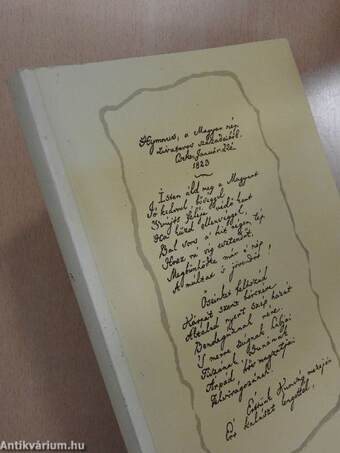 Hymnus, a Magyar nép
zivataros századaiból.
Cseke Január 22d
1823
Isten áld meg a Magyart
Jó kedvvel, bőséggel,
Nyújts feléje védő kart
Ha küzd ellenséggel,
Bal sors a' kit régen tép
Hozz rá víg esztendőt,
Megbűnhődte már e' nép
A' múltat s jövendőt!
Őseinket felhozád
Kárpát szent bérczére
Általad nyert szép hazát
Bendegúznak vére
'S merre zúgnak habjai
Tiszának, Dunának,
Árpád hős magzatjai
Felvirágozának.
Értünk Kunság mezején
Ért kalászt lengettél,
Antikvárium.hu
Antikvárium.hu